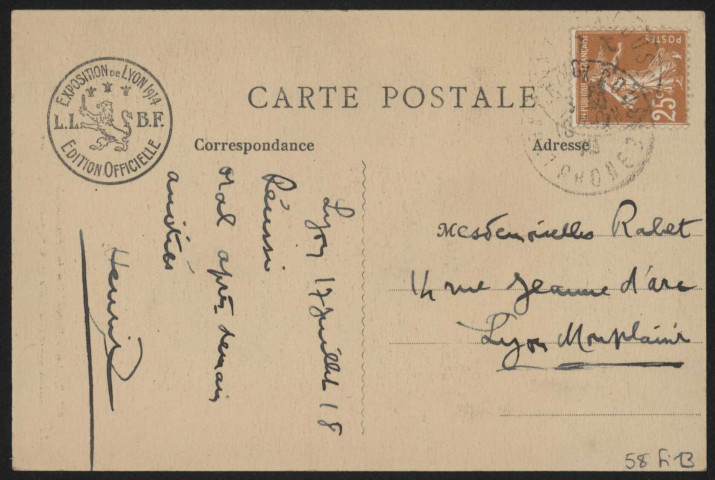 EXPOSITION DE LYON 1914
L.L. B.F.
EDITION OFFICIELLE
CARTE POSTALE
Correspondance
Adresse
POSTES
25
Lyon 17 juillet 18
Réussi
oral après demain
amitiés
Henri
Mesdemoiselles Rabet
14 rue Jeanne d'arc
Lyon Monplaisir
58 Fi 13